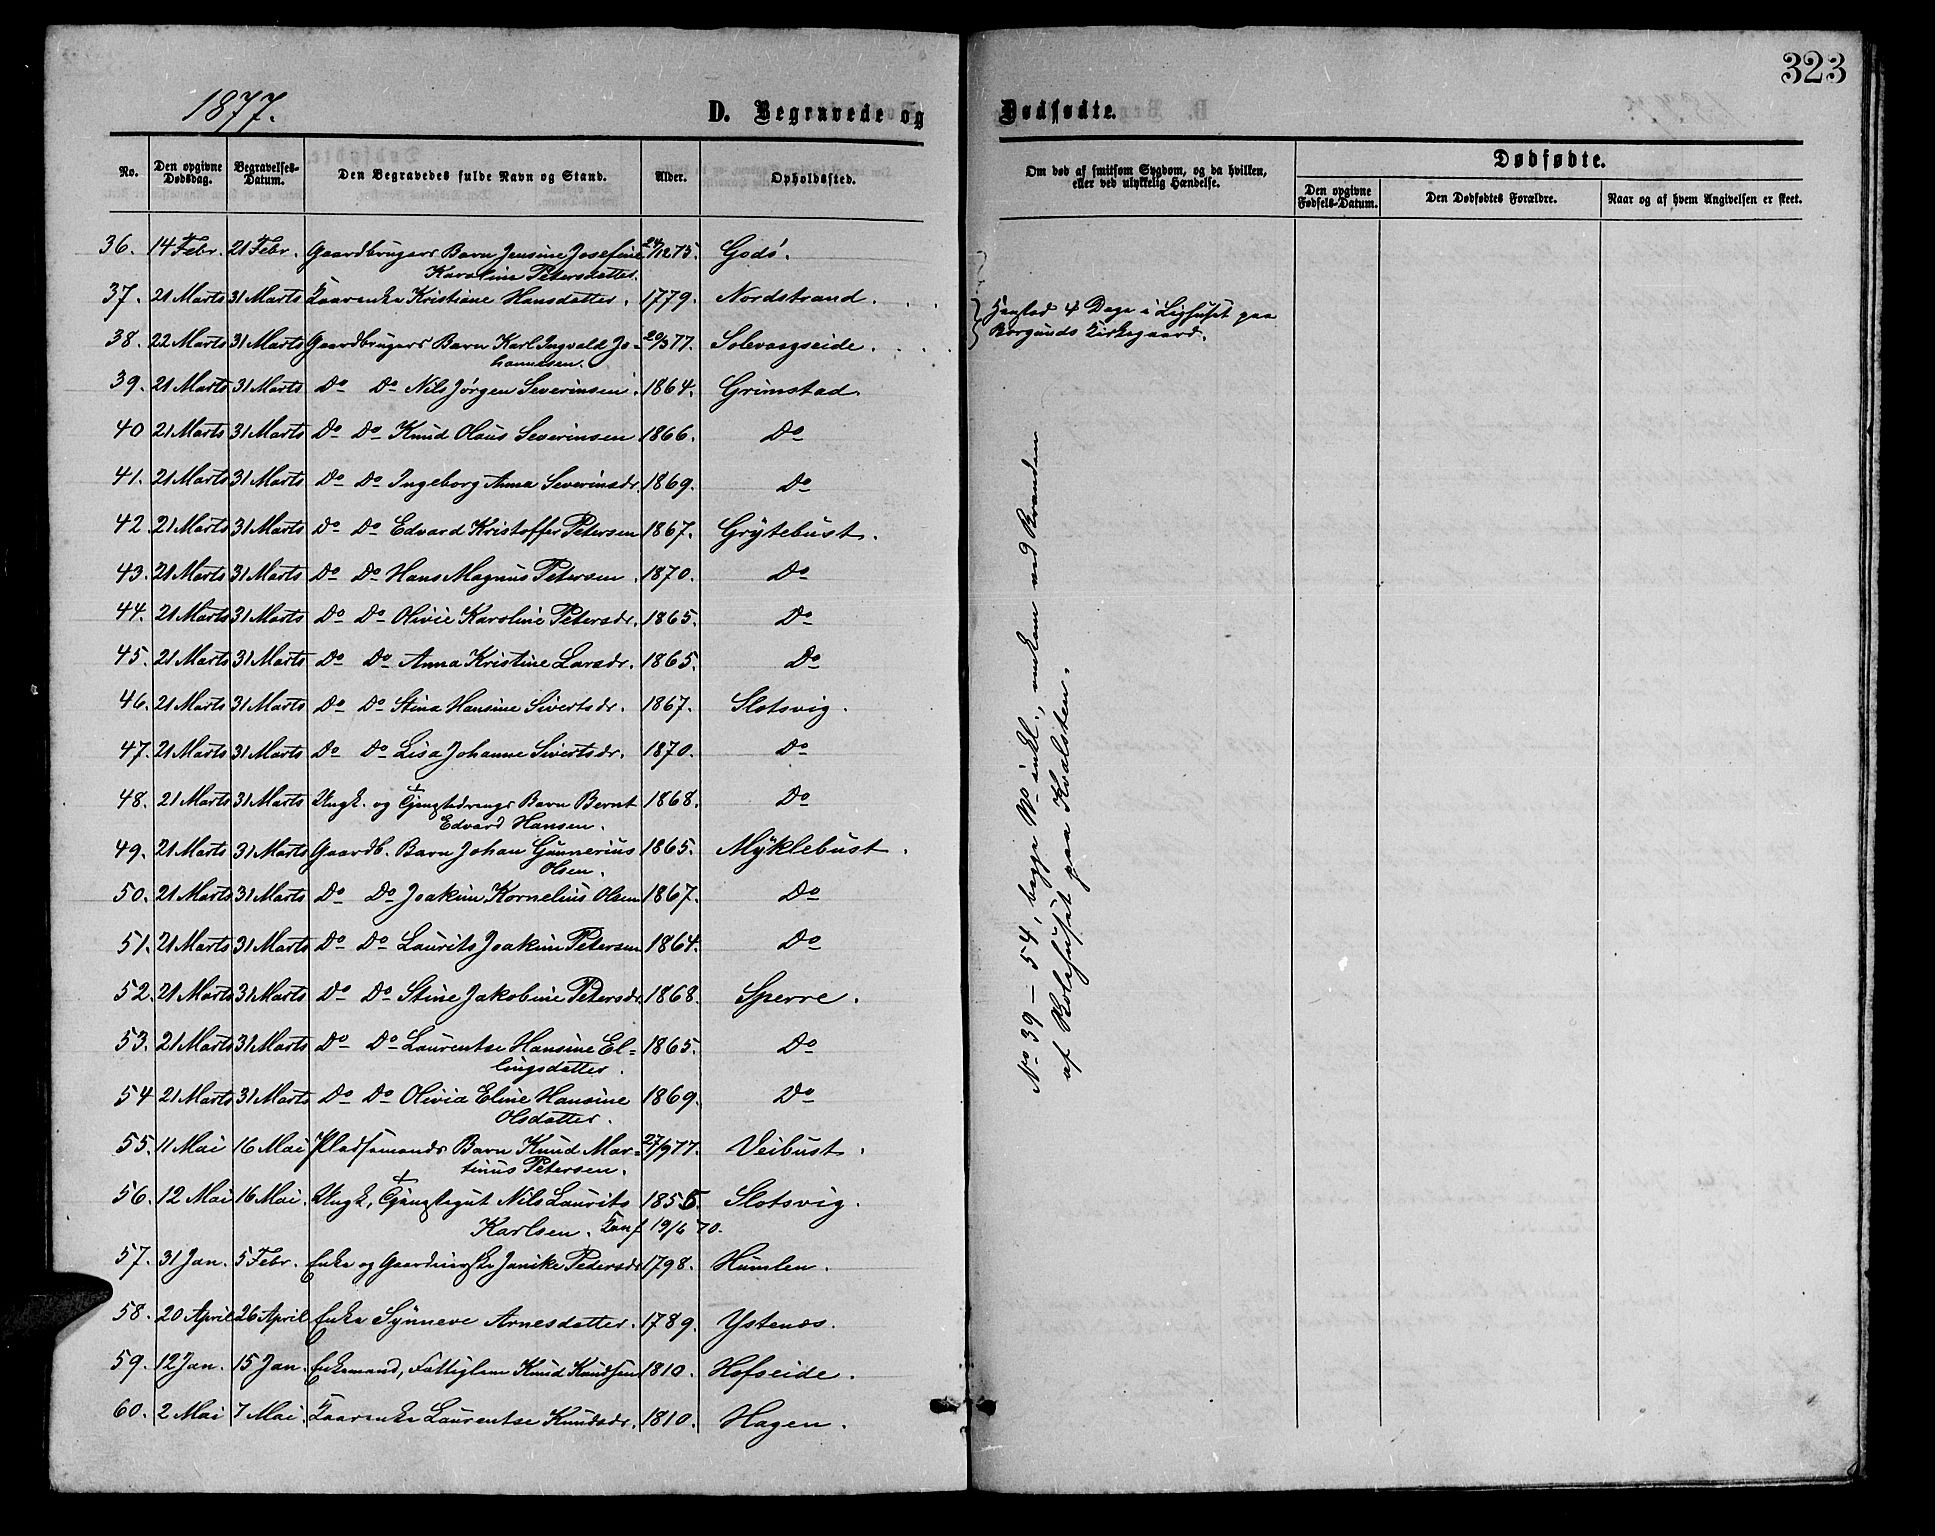 323
1877.
D. Begravede og Dødfødte.
No.
Den opgivne Dødsdag.
Begravelses-Datum.
Den Begravedes fulde Navn og Stand.
Alder.
Opholdssted.
Om død af smitsom Sygdom, og da hvilken, eller ved ulykkelig Hændelse.
Dødfødte.
Den opgivne Fødsels-Datum.
Den Dødfødtes Forældre.
Naar og af hvem Angivelsen er skeet.
36. 14 Febr. 21 Febr. Gaardbrugers Barn Jensine Josefine 24/12 75. Godø.
Karoline Petersdatter.
37. 21 Marts 31 Marts Kaarenke Kristiane Hansdatter. 1779. Nordstrand.
38. 22 Marts 31 Marts Gaardbrugers Barn Karl Ingvald Jo- 20/3 77. Solevaagseide.
hannesen.
Henstod 4 Dage i Lighuset paa
Borgunds Kirkegaard.
39. 21 Marts 31 Marts Do Do Nils Jørgen Severinsen. 1864. Grimstad.
40 21 Marts 31 Marts Do Do Knud Olaus Severinsen 1866. Do
41. 21 Marts 31 Marts Do Do Ingeborg Anna Severinsdr. 1869. Do
42. 21 Marts 31 Marts Do Do Edvard Kristoffer Petersen 1867. Grytebust.
43. 21 Marts 31 Marts Do Do Hans Magnus Petersen. 1870. Do
44. 21 Marts 31 Marts Do Do Olivie Karoline Petersdr. 1865. Do
45. 21 Marts 31 Marts Do Do Anna Kristine Larsdr. 1865. Do
46. 21 Marts 31 Marts Do Do Stina Hansine Sivertsdr. 1867. Slotsvig.
47. 21 Marts 31 Marts Do Do Lisa Johanne Sivertsdr. 1870. Do
48. 21 Marts 31 Marts Ungk. og Barn Bernt 1868. Do
Edvard Hansen.
49. 21 Marts 31 Marts Gaardb. Barn Johan Gunnerius 1865. Myklebust.
Olsen.
50. 21 Marts 31 Marts Do Do Joakim Kornelius Olsen 1867. Do
51. 21 Marts 31 Marts Do Do Laurits Joakim Petersen 1864. Do
52. 21 Marts 31 Marts Do Do Stine Jakobine Petersdr. 1868. Sperre.
53. 21 Marts 31 Marts Do Do Laurentse Hansine El- 1865. Do
lingsdatter.
54 21 Marts 31 Marts Do Do Olivia Eline Hansine 1869. Do
Olsdatter.
No 39 - 54, begge No inkl., omkom ved Branden
af Skolehuset paa Kvalsten.
55. 11 Mai 16 Mai Pladsemands Barn Knud Mar- 77. Veibust.
tinus Petersen.
56. 12 Mai 16 Mai. Ungk, Nils Laurits 1855. Slotsvig.
Karlsen. Konf 19/6 70.
57. 31 Jan. 5 Febr. Enke og Janike Pedersdr 1798. Humlen.
58. 20 April 26 April Enke Synneve Arnesdatter. 1789. Ystenæs.
59. 12 Jan. 15 Jan. Enkemand, Fattiglem Knud Knudsen 1810. Hofseide.
60. 2 Mai 7 Mai Kaarenke Laurentse Knudsdr. 1810. Hagen.